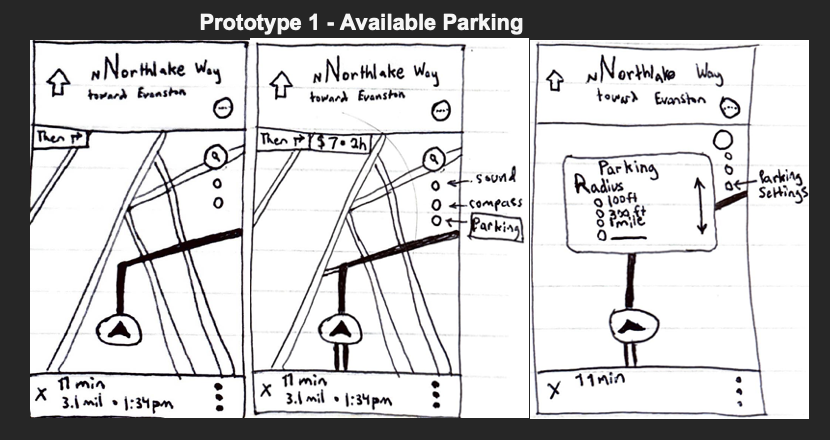 Prototype 1 - Available Parking
N Northlake Way
toward Evanston
Then
11 min
X
3.1 mil • 1:34pm
N Northlake Way
toward Evanston
Then
$7 • 2h
sound
compass
Parking
11 min
X
3.1 mil • 1:34pm
N Northlake Way
toward Evanston
Parking
Radius
100ft
300 ft
1 mile
Parking
Settings
X 11 min